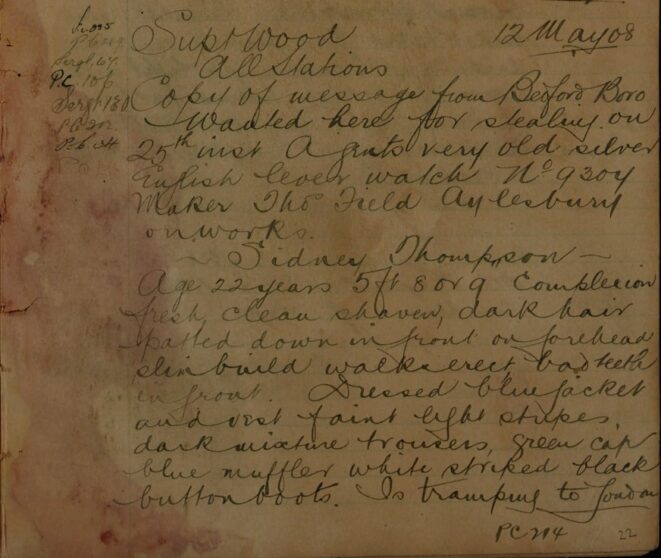 Supt Wood 12 May 08
All Stations
Copy of message from Bedford Boro
Wanted here for stealing on
25th inst A gents very old silver
English lever watch No 9304
Maker Thos Field Aylesbury
on works.
~ Sidney Thompson ~
Age 22 years 5ft 8 or 9 Complexion
fresh, clean shaven, dark hair
patted down in front on forehead
slim build walks erect, bad teeth
in front. Dressed blue jacket
and vest faint light stripes,
dark mixture trousers, green cap
blue muffler white striped black
button boots. Is tramping to London
PC 214 22
Sergt 67
PC 106
Sergt 180
PC 202